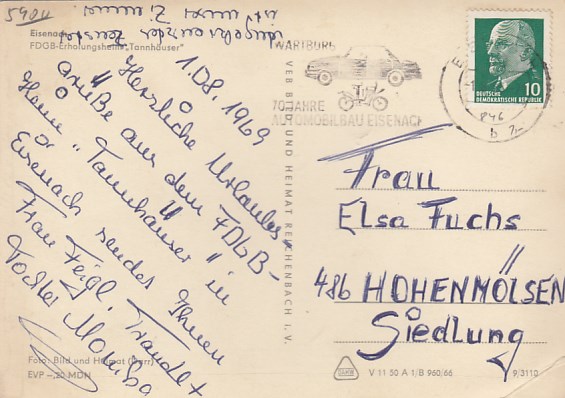 5900
Eisenach
FDGB-Erholungsheim „Tannhäuser"
ist unser Zimmer
WARTBURG
70 JAHRE
AUTOMOBILBAU EISENACH
10
DEUTSCHE
DEMOKRATISCHE REPUBLIK
846
b
VEB BILD UND HEIMAT REICHENBACH i. V.
1.08.1969
Herzliche Urlaubs-
grüße aus dem FDGB-
Heim „Tannhäuser" in
Eisenach sendet Ihnen
Frau Feigl, Traudl +
Tochter
Frau
Elsa Fuchs
486 HOHENMÖLSEN
Siedlung
Foto: Bild und Heimat (Darr)
EVP -,20 MDN
V 11 50 A 1/B 960/66
9/3110